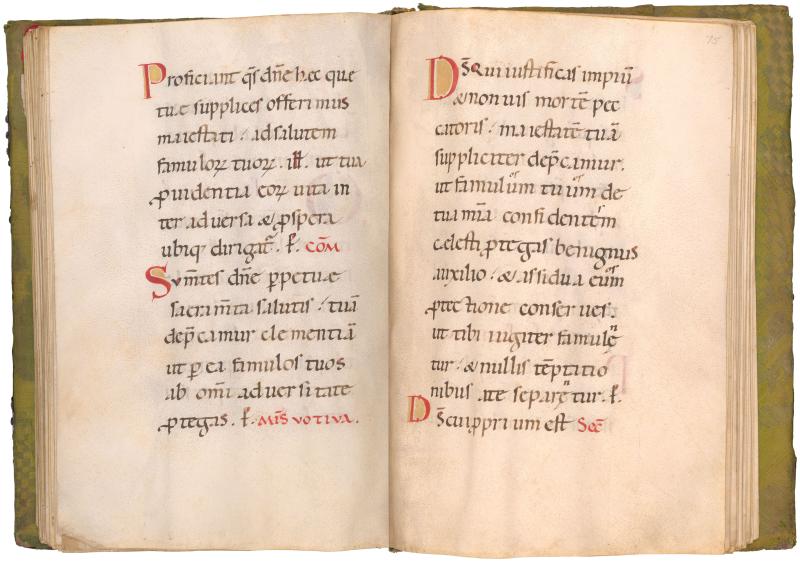 Proficiant q̄s dn̄e hęc quę
tuę supplices offerimus
maiestati · ad salutem
famuloꝝ tuoꝝ · ill̄ · ut tua
ꝓuidentia eoꝝ uita in
ter aduersa & ꝓspera
ubiq; dirigat̄ · P̄ · COM̄
Sum̄tes dn̄e ꝑpetuę
sacram̄ta salutis · tuā
dep̄camur clementiā
ut ꝑ ea famulos tuos
ab omī aduersitate
ꝓtegas · P̄ · MIS̄ VOTIVA ·
75
DS̄ Qui iustificas impiū
& non uis mortē pec
catoris · maiestatē tuā
suppliciter dep̄camur ·
ut famulum tuum de
tua mīa confidentem
cęlesti ꝓtegas benignus
auxilio · & assidua eum
ꝓtectione conserues ·
ut tibi iugiter famulę
tur · & nullis tēptatio
nibus a te separetur · P̄ ·
DS̄ cui ꝓprium est SEC̄